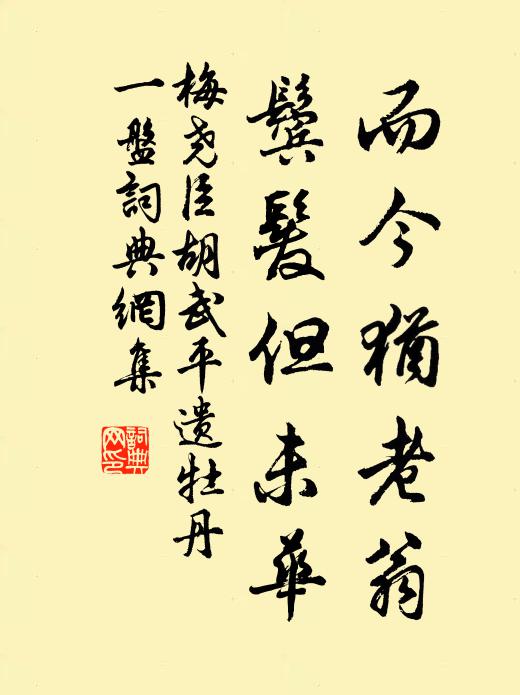 而今猶老翁
鬢髮但未華
梅尧臣胡武平遗牡丹
一盤詞典網集
詞典
网印